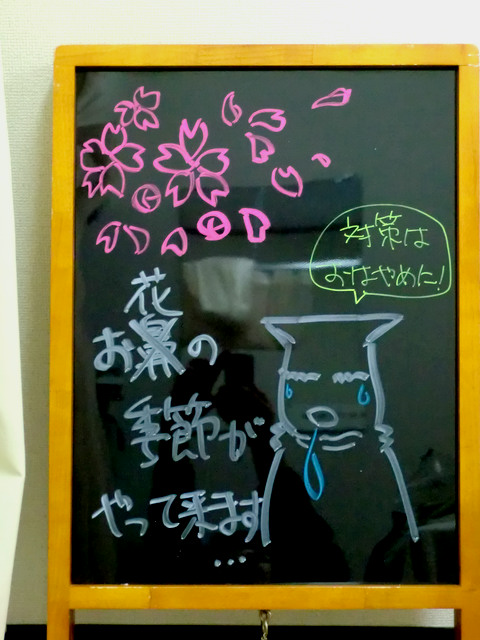 対策は
おはやめに!
花
お鼻の
季節が
やって来ます
...